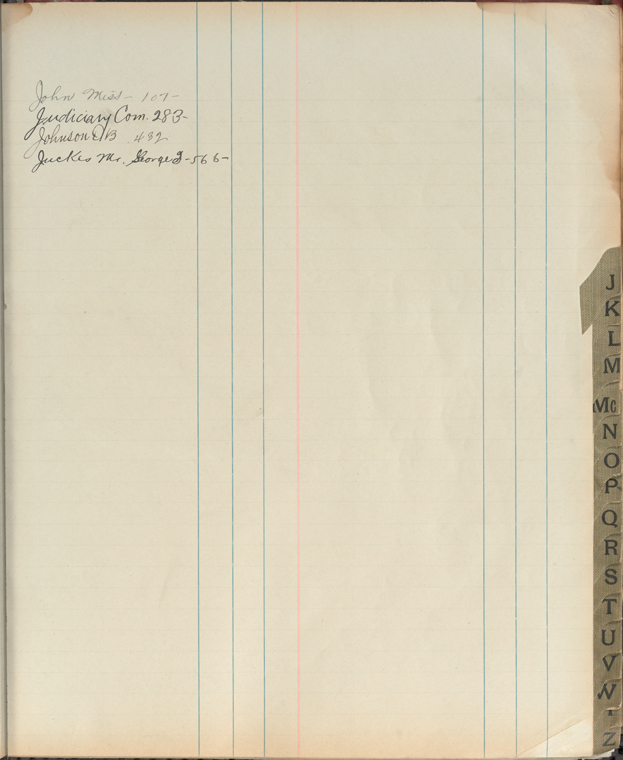 John Miss - 107 -
Judiciary Com. 283 -
Johnson C.B 432
Juckes Mr. George J - 566 -
J
K
L
M
Mc
N
O
P
Q
R
S
T
U
V
W
Y
Z